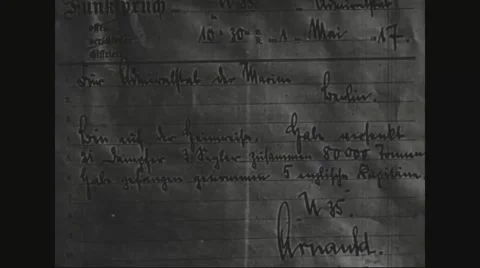 Funkspruch U 35 Admiralstab
offen
verschlüsselt
10 30 1 Mai 17.
Für Admiralstab der Marine
Berlin.
Bin auf der Heimreise. Habe versenkt
Dampfer Segler zusammen 80 000 Tonnen
Habe gefangen genommen 5 englische Kapitäne.
U 35.
Arnauld.